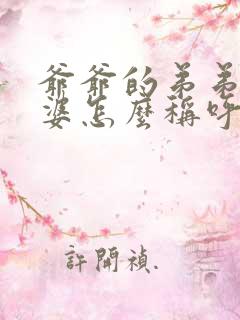 爺爺的弟弟
婆怎麼稱呼
許開禎.